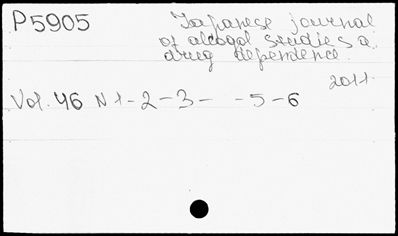 P5905
Japanese journal
of alcogol studies a.
drug dependence.
2011
Vol. 46 N 1-2-3- -5-6